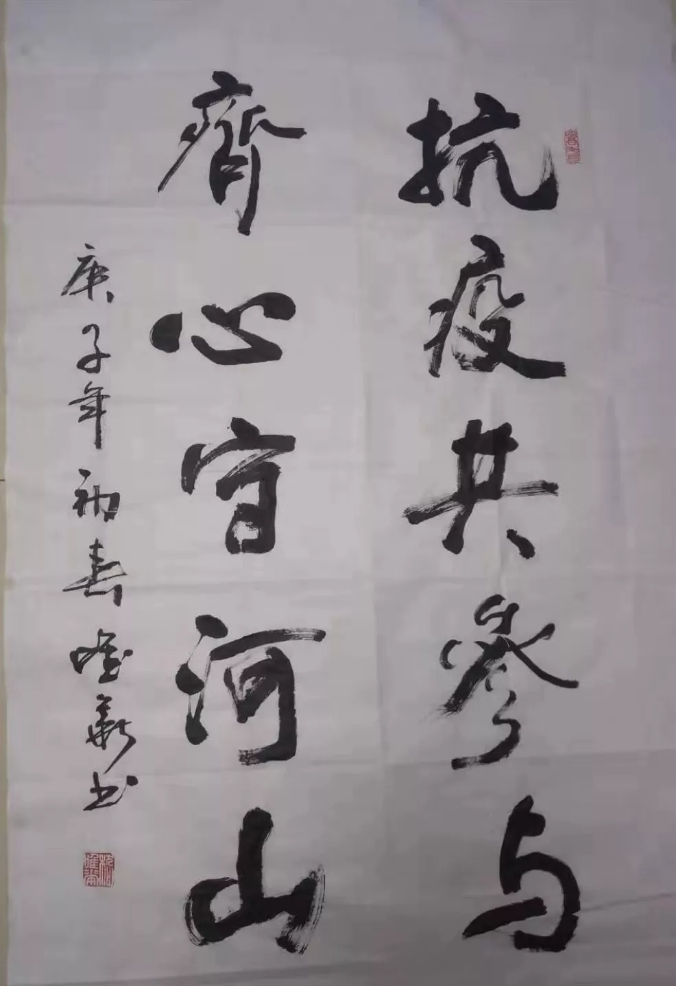 抗疫共參与
齊心守河山
庚子年初春
书